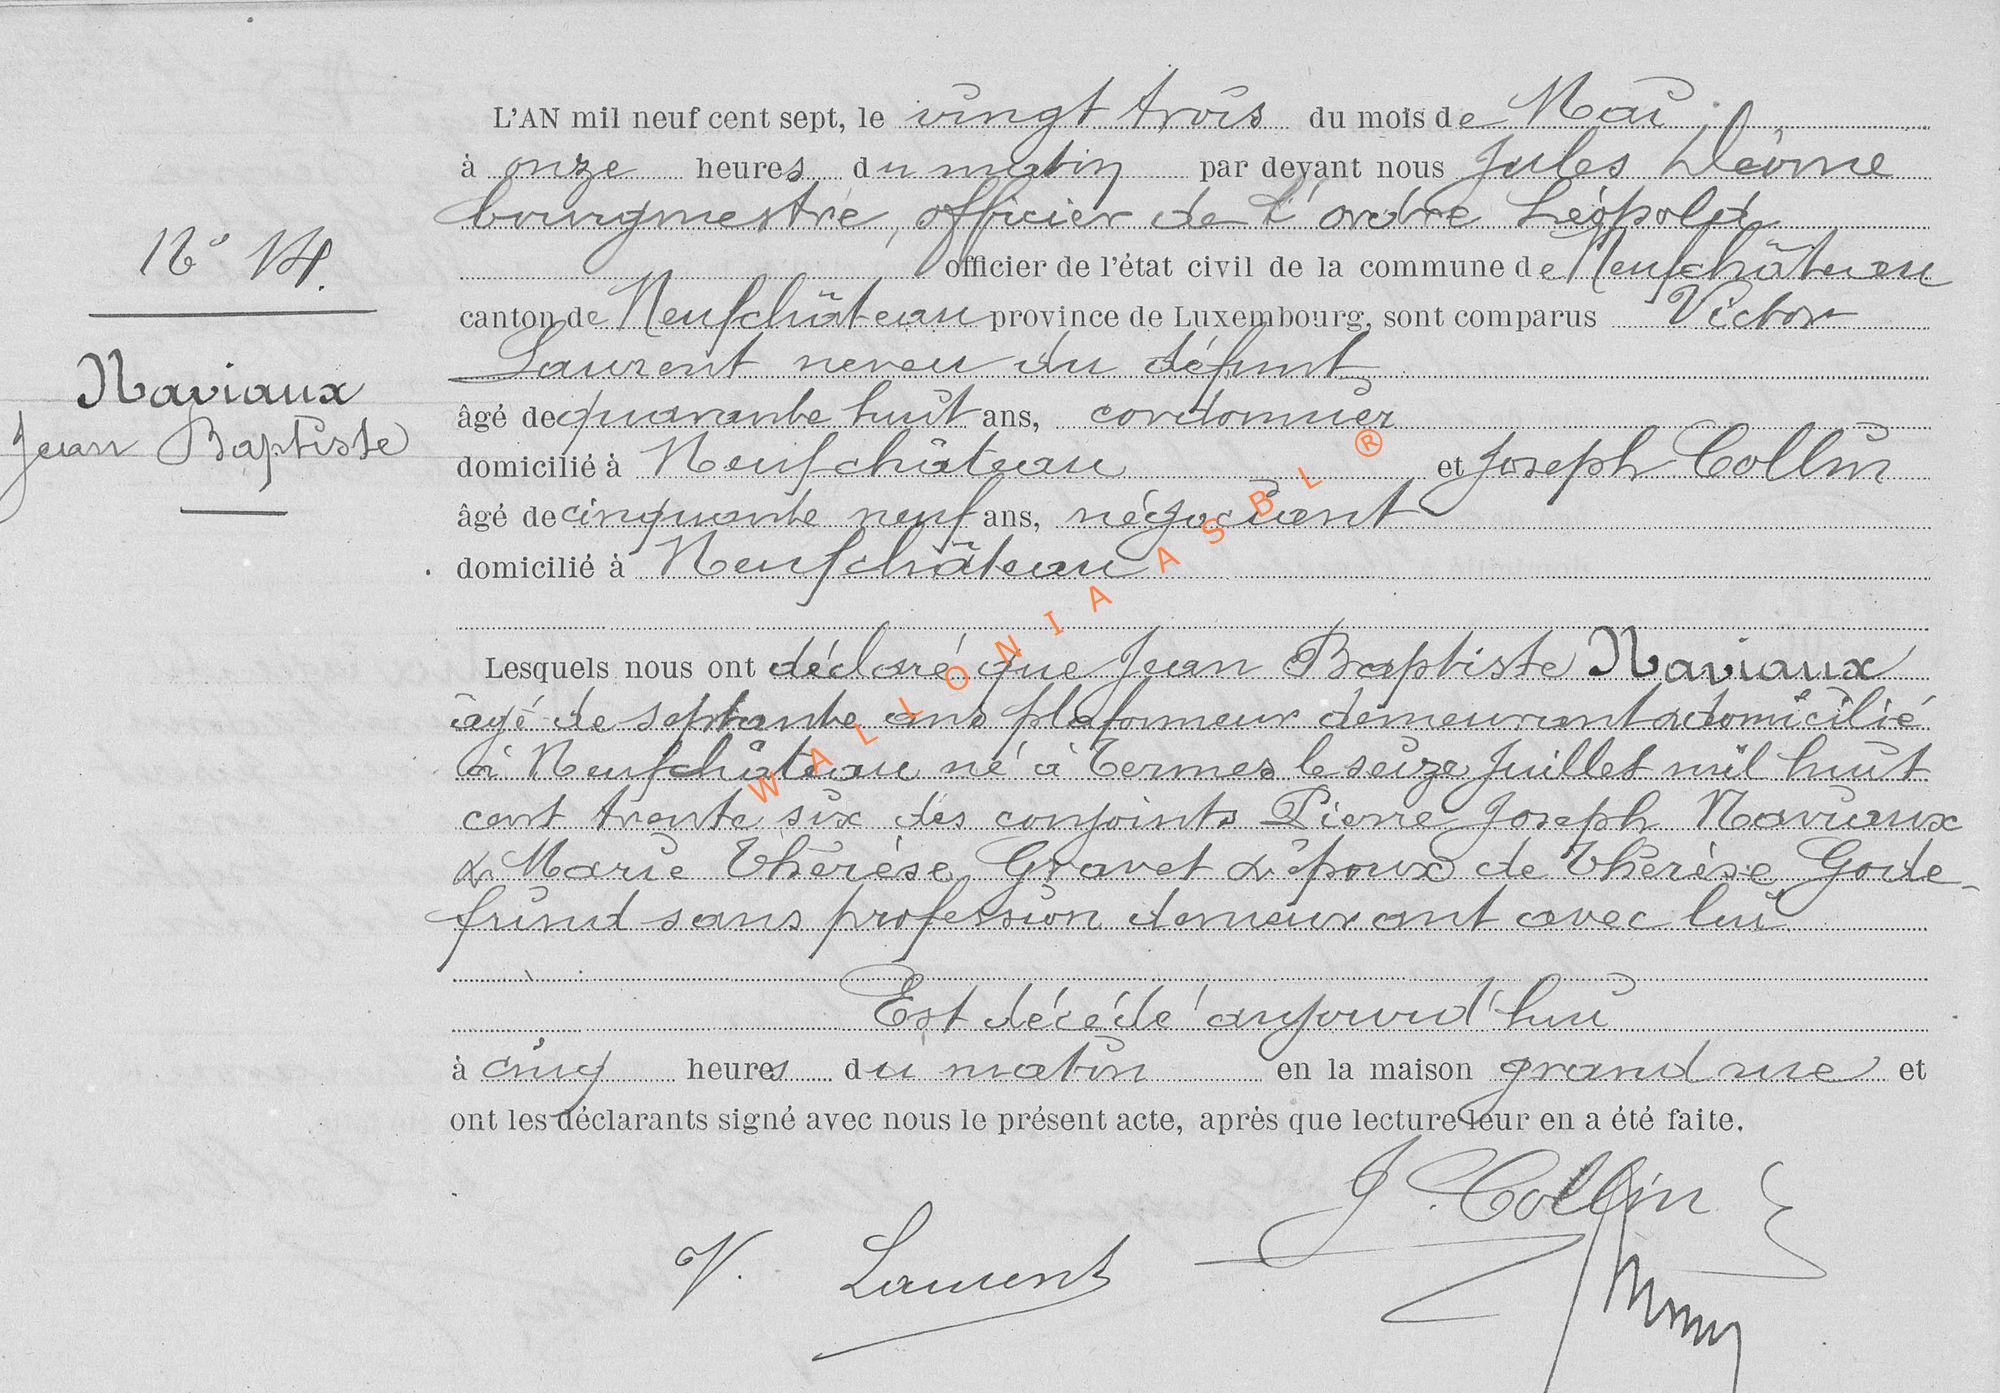 L'AN mil neuf cent sept, le vingt trois du mois de Mai
à onze heures du matin par devant nous Jules
bourgmestre, officier de l'ordre Léopold
N° 14.
officier de l'état civil de la commune de Neufchâteau
canton de Neufchâteau province de Luxembourg, sont comparus Victor
Laurent neveu du défunt
Naviaux
Jean Baptiste
âgé de quarante huit ans, cordonnier
domicilié à Neufchâteau et Joseph Collin
âgé de cinquante neuf ans, négociant
domicilié à Neufchâteau
WALLONIA ASBL ®
Lesquels nous ont déclaré que Jean Baptiste Naviaux
âgé de septante ans plafonneur demeurant & domicilié
à Neufchâteau né à Termes le seize Juillet mil huit
cent trente six des conjoints Pierre Joseph Naviaux
& Marie Thérèse Gravet & époux de Thérèse Gode-
frind sans profession demeurant avec lui
Est décédé aujourd'hui
à cinq heures du matin en la maison grand rue et
ont les déclarants signé avec nous le présent acte, après que lecture leur en a été faite.
J. Collin
V. Laurent